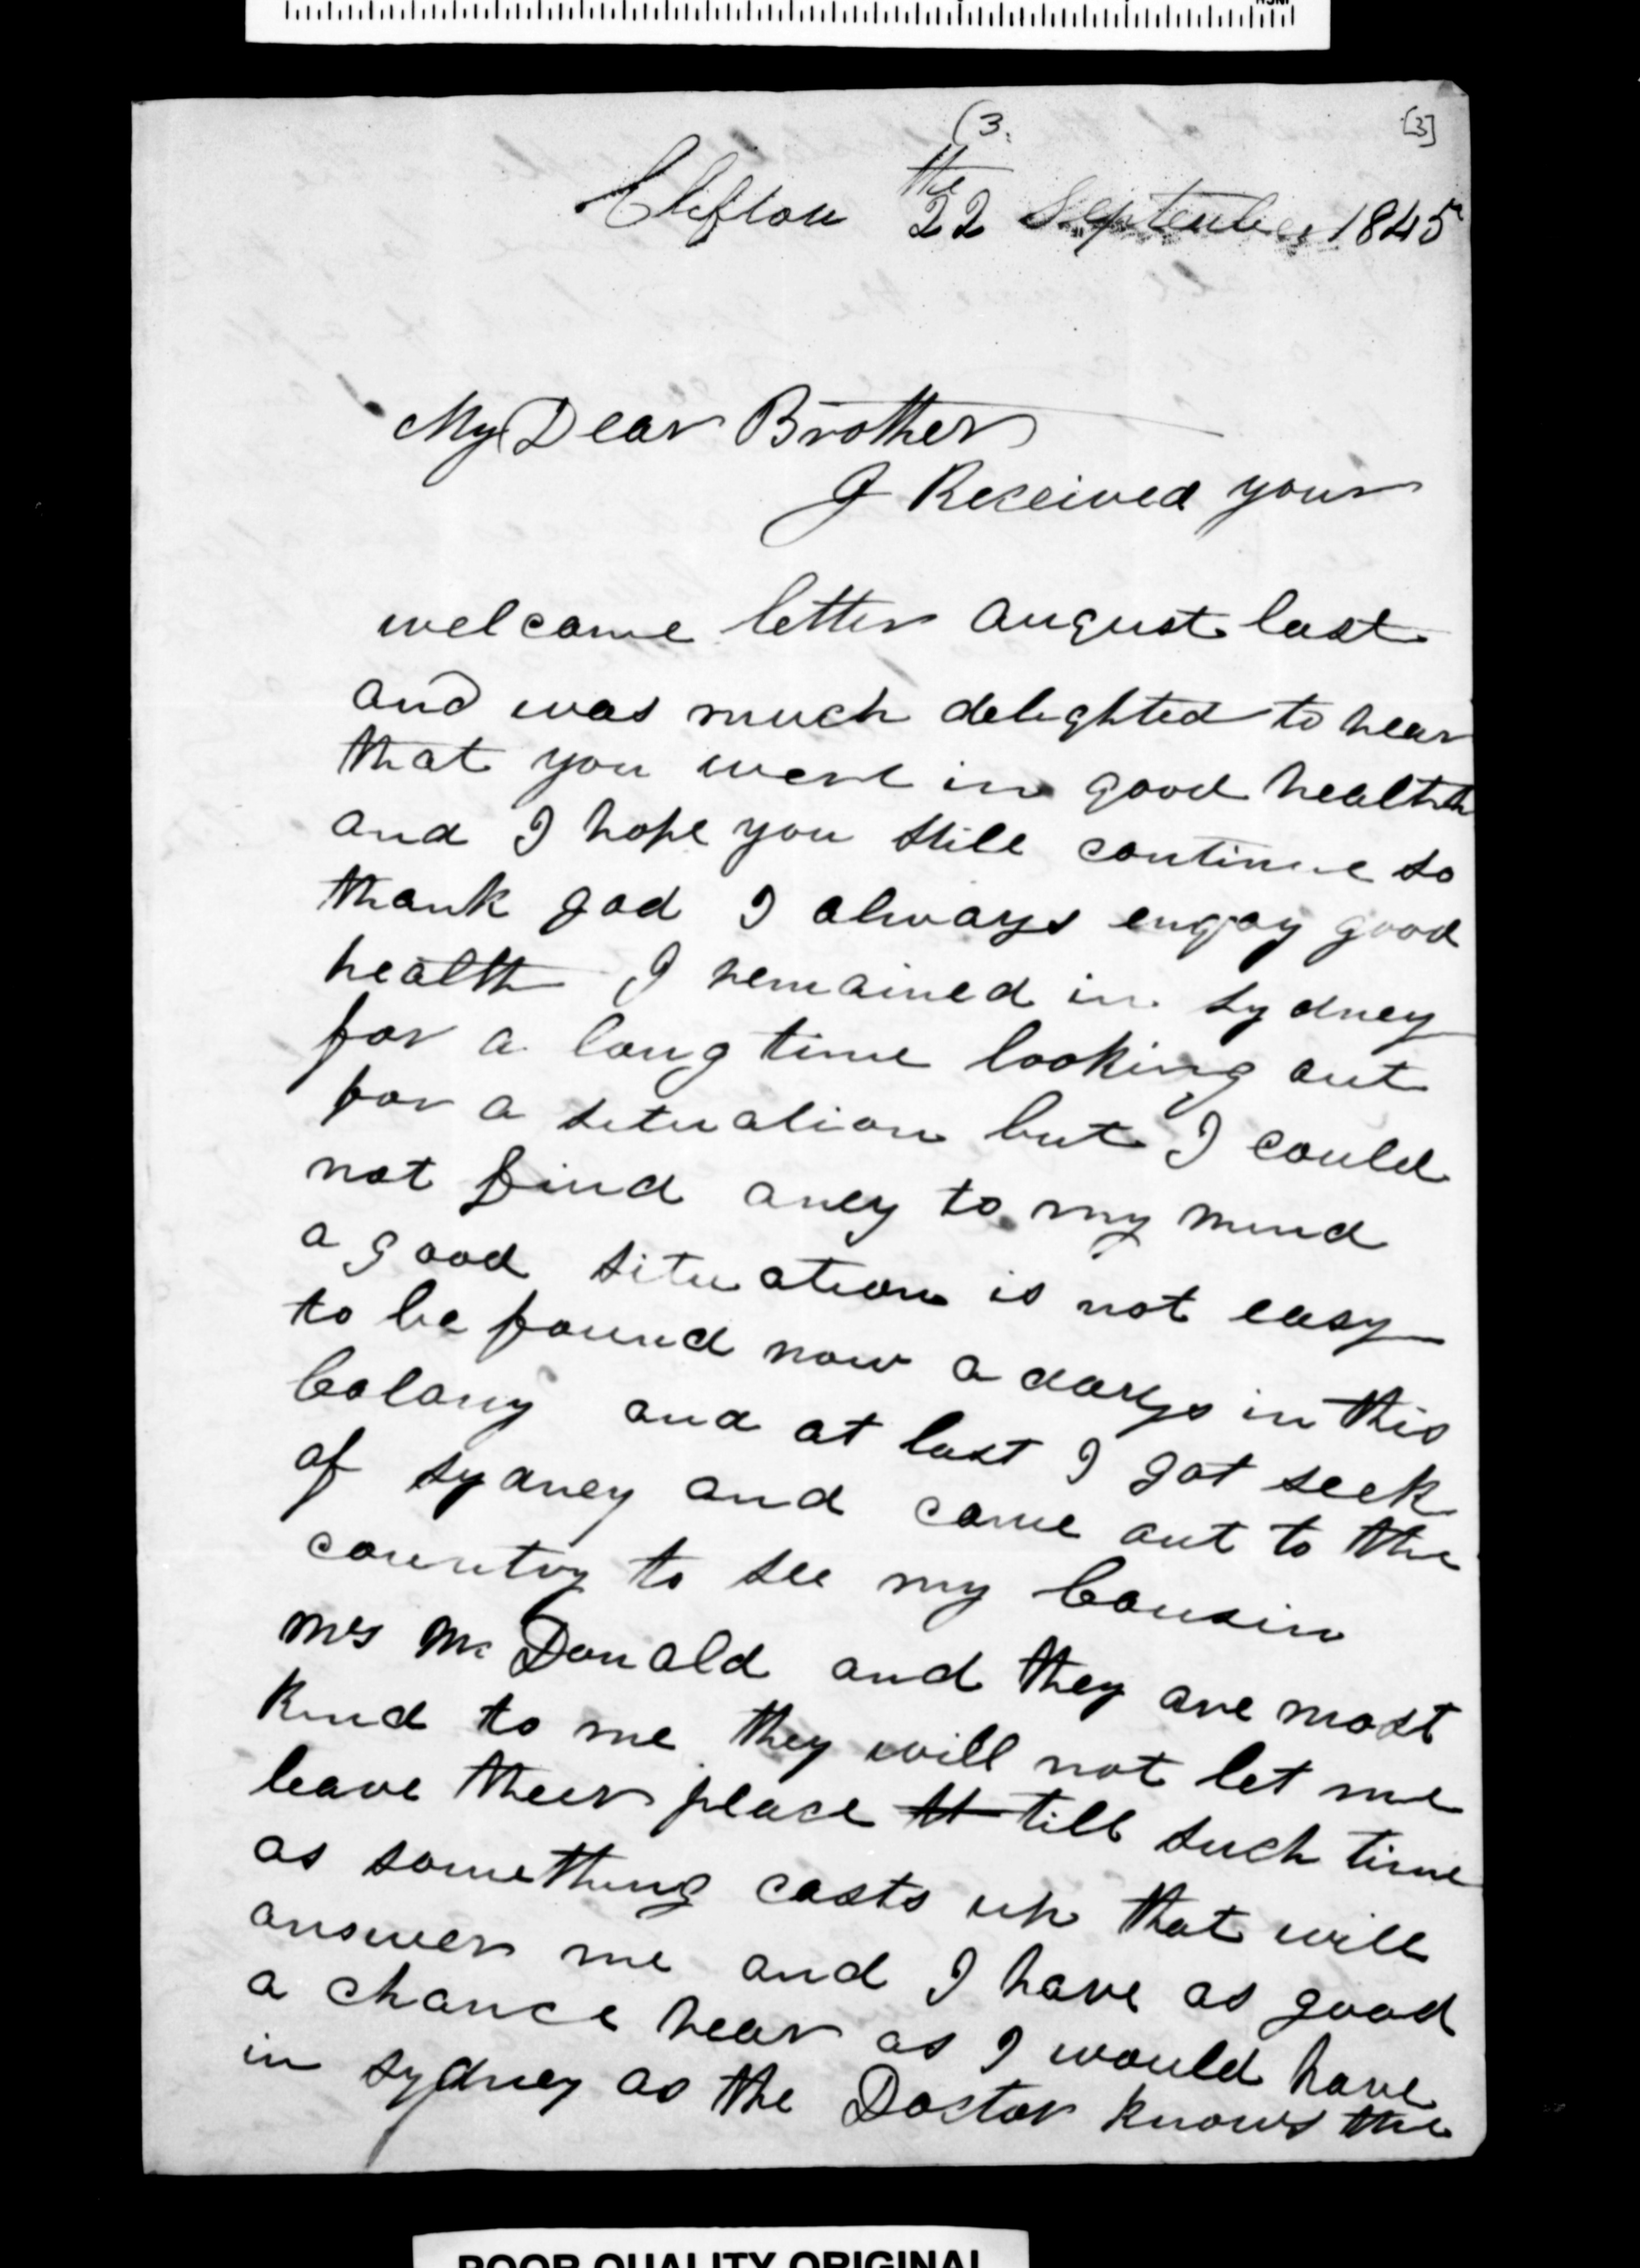 (3.
[3]
Clifton the 22 September 1845
My Dear Brother
I Received your
welcome letter august last
and was much delighted to hear
that you were in good health
and I hope you still continue so
thank god I always engoy good
health I remained in sydney
for a long time looking out
for a situation but I could
not find aney to my mind
a good situation is not easy
to be found now a days in this
Colony and at last I got seek
of sydney and came out to the
country to see my Cousin
mrs Mc Donald and they are most
Kind to me they will not let me
leave theer place tt till such time
as something casts up that will
answer me and I have as good
a chance hear as I would have
in sydney as the Doctor knows the
POOR QUALITY ORIGINAL